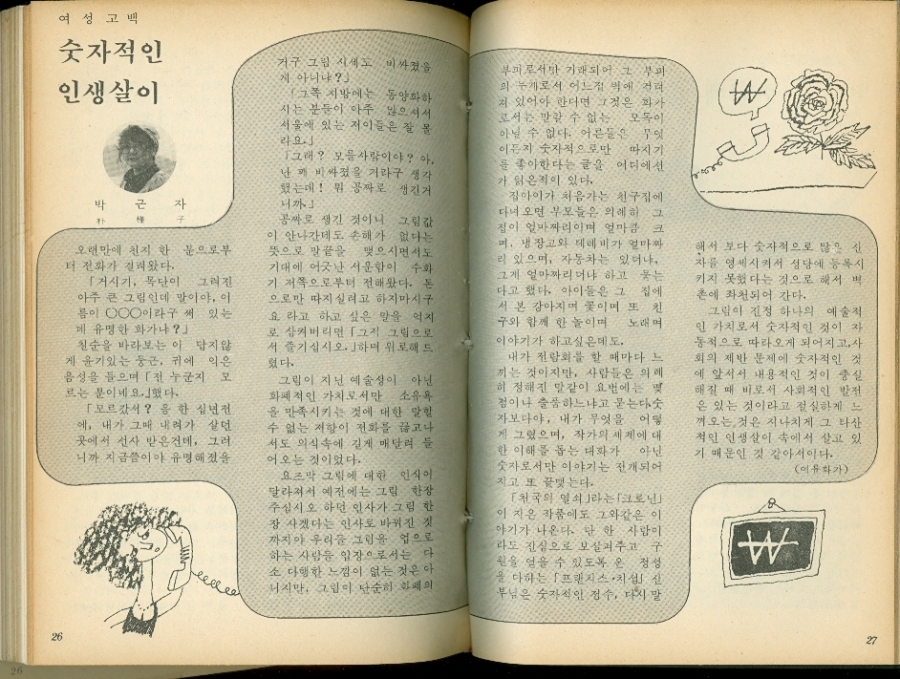 여성고백
숫자적인
인생살이
박근자
朴槿子
오랜만에 친지 한 분으로부
터 전화가 걸려왔다.
「거시기, 목단이 그려진
아주 큰 그림인데 말이야, 이
름이 ○○○이라구 써 있는
데 유명한 화가냐?」
천순을 바라보는 이 답지않
게 윤기있는 둥근, 귀에 익은
음성을 들으며 「전 누군지 모
르는 분이네요.」했다.
「모르갔서? 을 한 십년전
에, 내가 그때 내려가 살던
곳에서 선사 받은건데, 그러
니까 지금쯤이야 유명해졌을
거구 그림 시세도 비싸졌을
게 아니냐?」
「그쪽 지방에는 동양화하
시는 분들이 아주 많으셔서
서울에 있는 저이들은 잘 몰
라요.」
「그래? 모를사람이야? 아,
난 꽤 비싸졌을 거라구 생각
했는데! 뭐 공짜로 생긴거
니까.」
공짜로 생긴 것이니 그림값
이 안나간데도 손해가 없다는
뜻으로 말끝을 맺으시면서도
기대에 어긋난 서운함이 수화
기 저쪽으로부터 전해왔다. 돈
으로만 따지실려고 하지마시구
요 라고 하고 싶은 말을 억지
로 삼켜버리면 「그저 그림으로
서 즐기십시오.」하며 위로해 드
렸다.
그림이 지닌 예술성이 아닌
화폐적인 가치로서만 소유욕
을 만족시키는 것에 대한 말할
수 없는 저항이 전화를 끊고나
서도 의식속에 길게 매달려 들
어오는 것이었다.
요즈막 그림에 대한 인식이
달라져서 예전에는 그림 한장
주십시오 하던 인사가 그림 한
장 사겠다는 인사로 바뀌진 것
까지야 우리들 그림을 업으로
하는 사람들 입장으로서는 다
소 다행한 느낌이 없는 것은 아
니지만, 그림이 단순히 화폐의
부피로서만 거래되어 그 부피
의 누계로서 어느집 벽에 걸려
져 있어야 한다면 그것은 화가
로서는 말할 수 없는 모독이
아닐 수 없다. 어른들은 무엇
이든지 숫자적으로만 따지기
를 좋아한다는 글을 어디에선
가 읽은적이 있다.
집아이가 처음가는 친구집에
다녀 오면 부모들은 의례히 그
집이 얼마짜리이며 얼마큼 크
며, 냉장고와 테레비가 얼마짜
리 있으며, 자동차는 있더냐,
그게 얼마짜리더냐 하고 묻는
다고 했다. 아이들은 그 집에
서 본 강아지며 꽃이며 또 친
구와 함께 한 놀이며 노래며
이야기가 하고싶은데도.
내가 전람회를 할 때마다 느
끼는 것이지만, 사람들은 의례
히 정해진 말같이 요번에는 몇
점이나 출품하느냐고 묻는다.숫
자보다야, 내가 무엇을 어떻
게 그렸으며, 작가의 세계에 대
한 이해를 돕는 대화가 아닌
숫자로서만 이야기는 전개되어
지고 또 끝맺는다.
「천국의 열쇠」라는「크로닌」
이 지은 작품에도 그와같은 이
야기가 나온다. 단 한 사람이
라도 진심으로 보살펴주고 구
원을 얻을 수 있도록 온 정성
을 다하는 「프랜지스·치셤」 신
부님은 숫자적인 점수, 다시말
해서 보다 숫자적으로 많은 신
자를 영세시켜서 성당에 등록시
키지 못했다는 것으로 해서 벽
촌에 좌천되어 간다.
그림이 진정 하나의 예술적
인 가치로서 숫자적인 것이 자
동적으로 따라오게 되어지고,사
회의 제반 문제에 숫자적인 것
에 앞서서 내용적인 것이 충실
해질 때 비로서 사회적인 발전
은 있는 것이라고 절실하게 느
껴오는 것은 지나치게 그 타산
적인 인생살이 속에서 살고 있
기 때문인 것 같아서이다.
(이류화가)
26
27